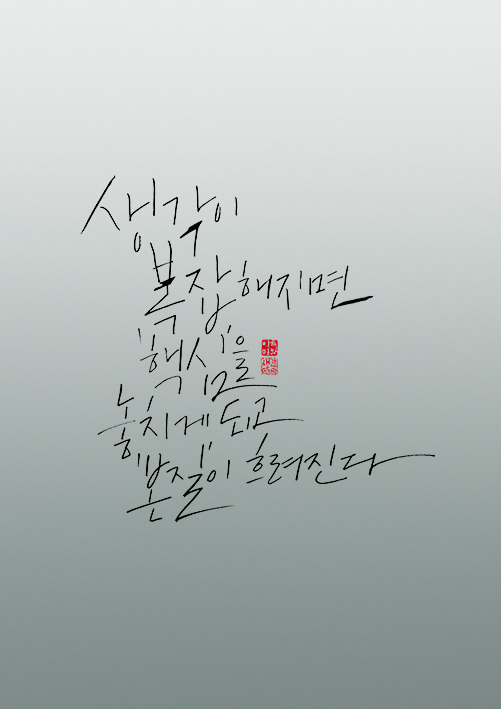 생각이
복잡해지면
핵심을
놓치게 되고
본질이 흐려진다